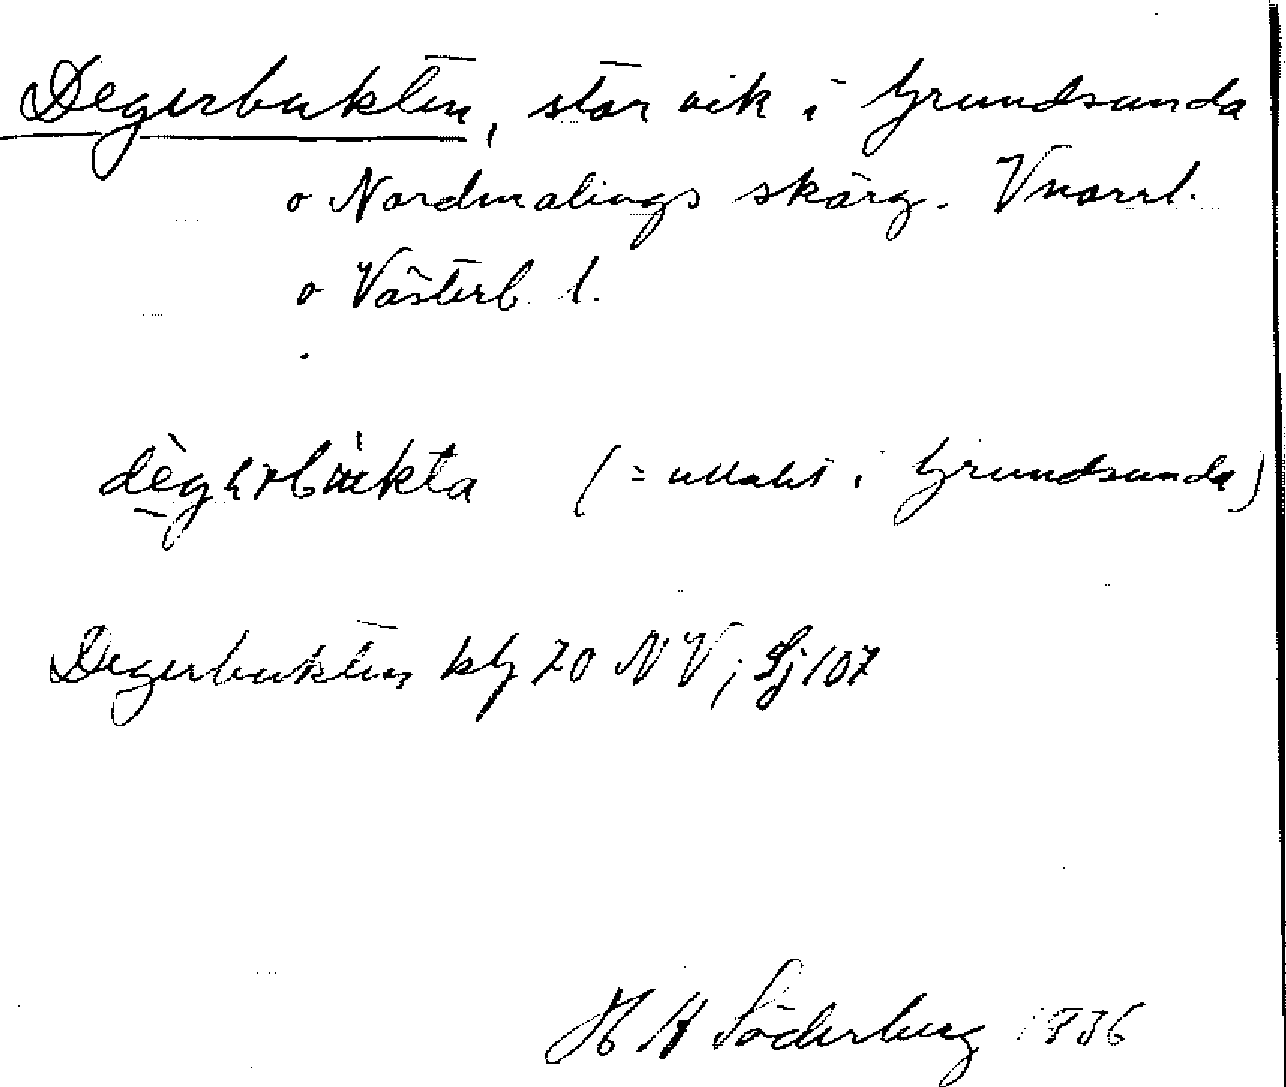 Degerbukten, stor vik i Grundsunda
o Nordmalings skärg. Vnorrl.
o Västerb. l.
(= uttalet i Grundsunda)
Degerbukten kbl 70 NV; Sj 107
H A Söderberg 1936